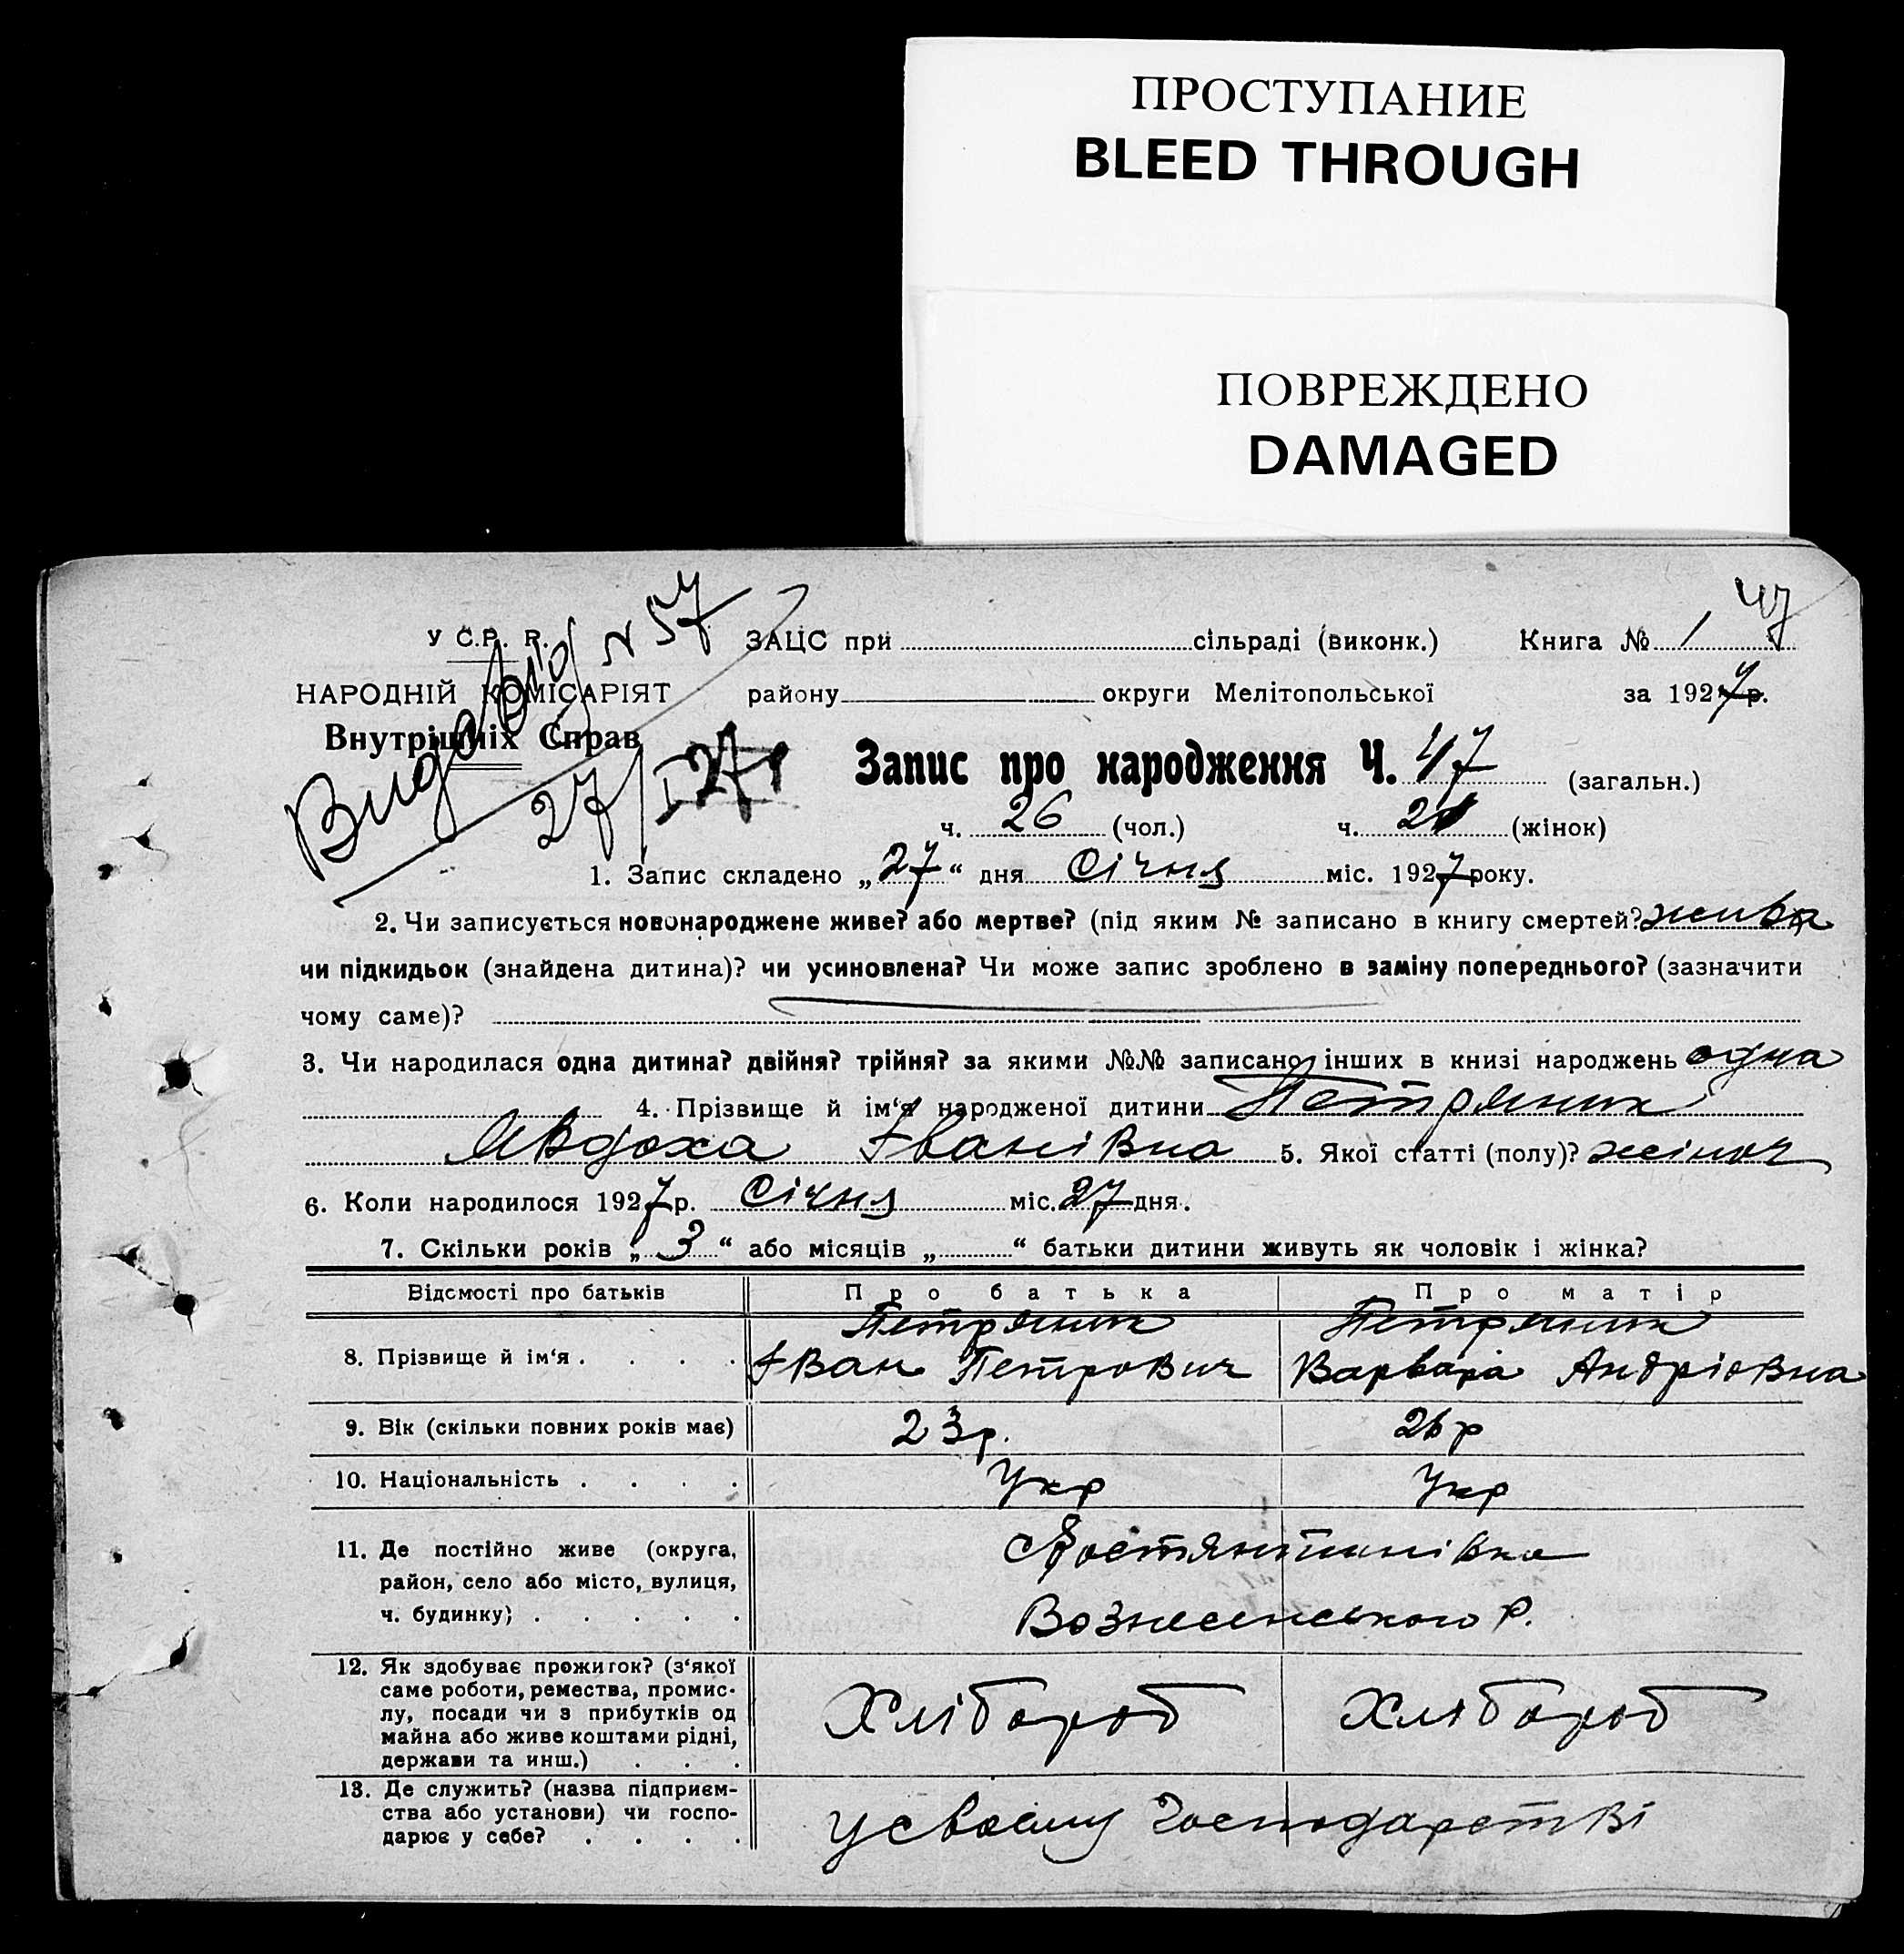 ПРОСТУПАНИЕ
BLEED THROUGH
ПОВРЕЖДЕНО
DAMAGED
47
Видан від N 57
27/I 27 р
У С.Р. Р.
НАРОДНІЙ КОМІСАРІЯТ
Внутрішніх Справ
ЗАЦС при сільраді (виконк.) Книга № 1
району округи Мелітопольської за 1927 р.
Запис про народження Ч. 47 (загальн.)
ч. 26 (чол.) ч. 21 (жінок)
1. Запис складено „27“ дня Січня міс. 1927 року.
2. Чи записується новонароджене живе? або мертве? (під яким № записано в книгу смертей? жива
чи підкидьок (знайдена дитина)? чи усиновлена? Чи може запис зроблено в заміну попереднього? (зазначити
чому саме)?
3. Чи народилася одна дитина? двійня? трійня? за якими №№ записано інших в книзі народжень одна
4. Прізвище й ім‘я народженої дитини Петряник
Явдоха Іванівна 5. Якої статті (полу)? жіноч
6. Коли народилося 1927 р. Січня міс. 27 дня.
7. Скільки років „3“ або місяців „ “ батьки дитини живуть як чоловік і жінка?
Відомості про батьків Про батька Про матір
8. Прізвище й ім‘я . . . . Петряник Іван Петрович Петряник Варвара Андріовна
9. Вік (скільки повних років має) 23 р. 26 р
10. Національність . . . . Укр Укр
11. Де постійно живе (округа,
район, село або місто, вулиця,
ч. будинку) . . . . .
Вознесенського р.
12. Як здобуває прожиток? (з‘якої
саме роботи, ремества, промис-
лу, посади чи з прибутків од
майна або живе коштами рідні,
держави та инш.) . . .
Хлібороб Хлібороб
13. Де служить? (назва підприєм-
ства або установи) чи госпо-
дарює у себе? . . . .
у своєму господарстві